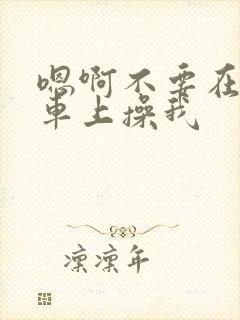 嗯啊不要在
車上操我
凛凛年